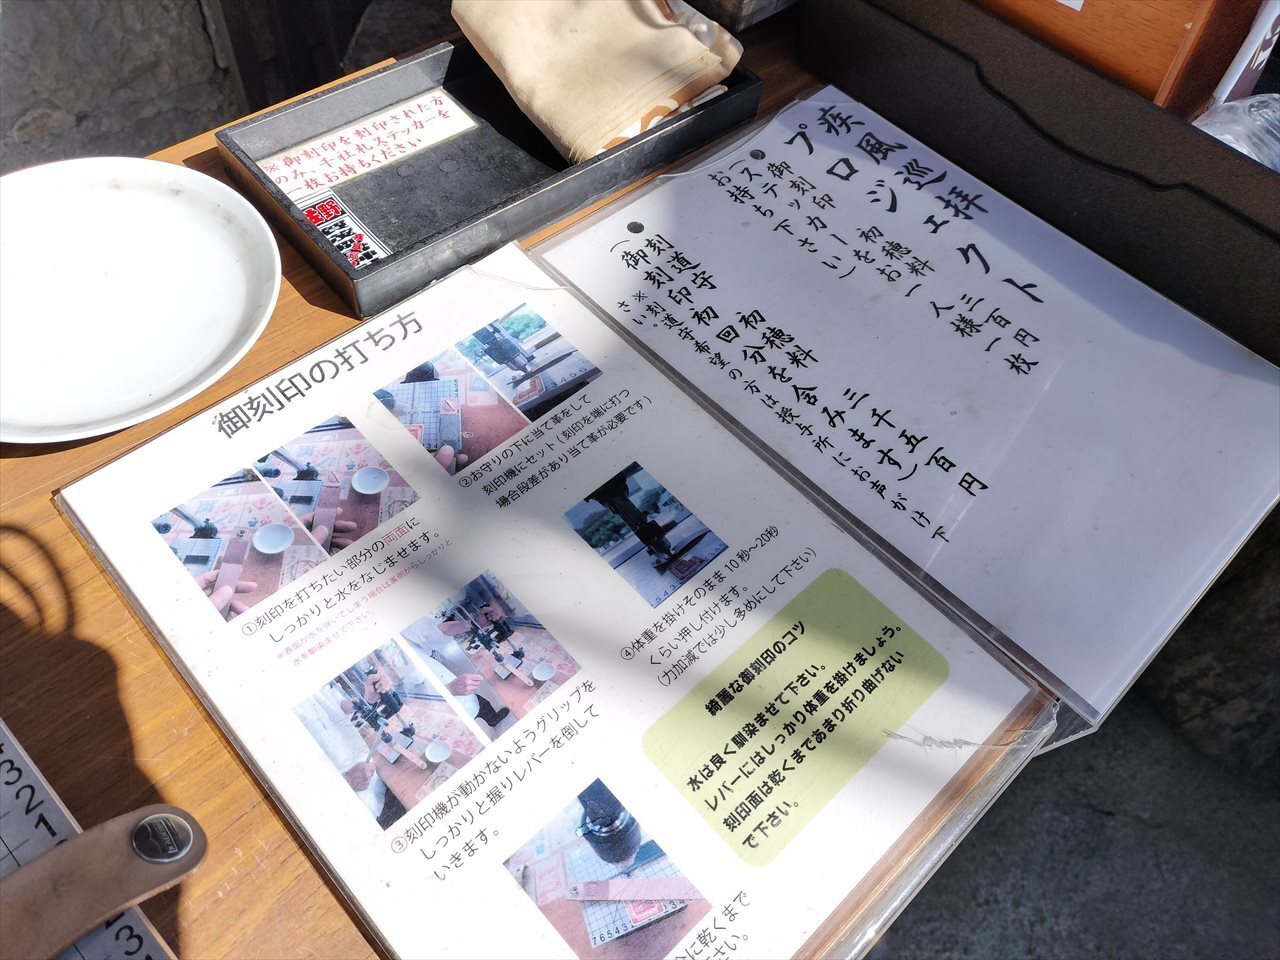 ※御刻印を刻印された方
のみ、千社札ステッカーを
一枚お持ちください
疾風巡拝
プロジェクト
御刻印 初穂料 三百円
(ステッカーをお一人様一枚
お持ち下さい)
刻道守 初穂料 三千五百円
(御刻印初回分を含みます)
※刻道守希望の方は授与所にお声がけ下
さい。
御刻印の打ち方
①刻印を打ちたい部分の両面に
しっかりと水をなじませます。
※表面が水を弾いてしまう場合は裏側からしっかりと
水を馴染ませて下さい。
②お守りの下に当て革をして
刻印機にセット(刻印を端に打つ
場合段差があり当て革が必要です)
③刻印機が動かないようグリップを
しっかりと握りレバーを倒して
いきます。
④体重を掛けそのまま10秒~20秒
くらい押し付けます。
(力加減では少し多めにして下さい)
綺麗な御刻印のコツ
水は良く馴染ませて下さい。
レバーにはしっかり体重を掛けましょう。
刻印面は乾くまであまり折り曲げない
で下さい。
に乾くまで
さい。
765432
3
2
1